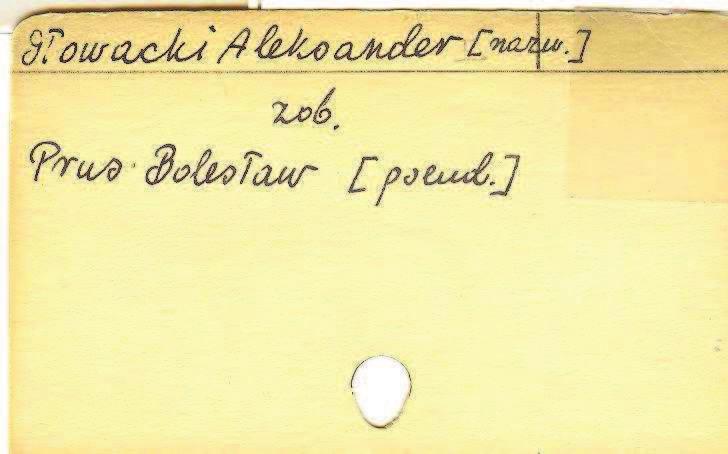 Głowacki Aleksander [nazw.]
zob.
Prus Bolesław [pseud.]